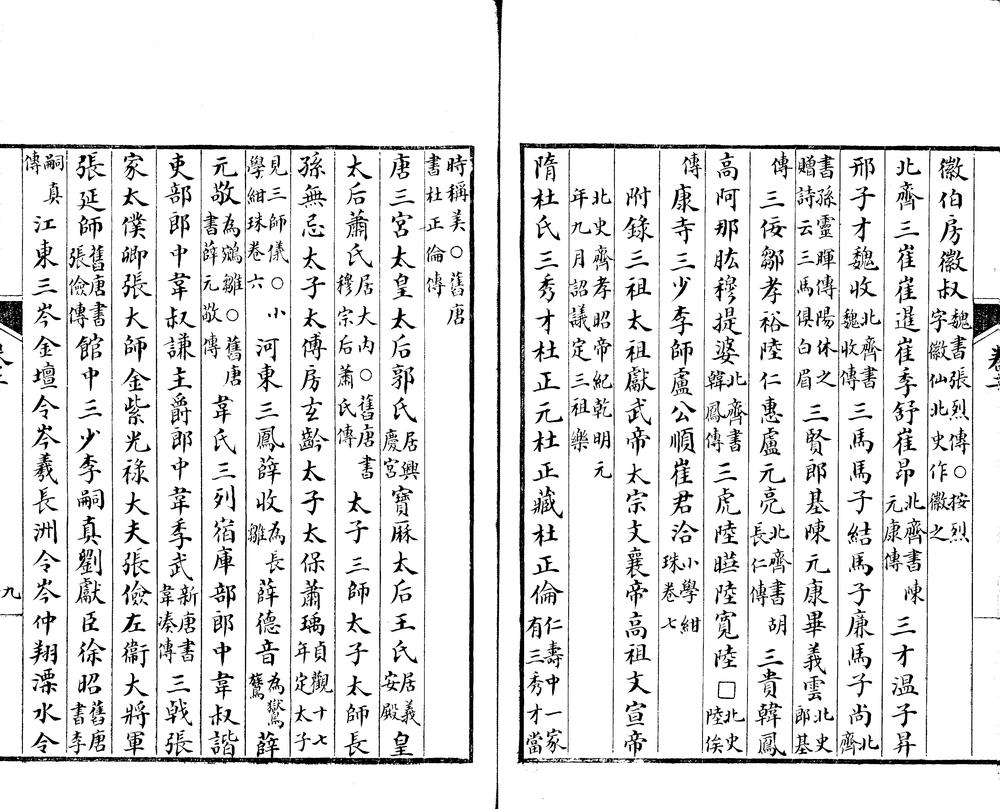 徽伯房徽叔魏書張烈傳○按烈字徽仙北史作徽之
北齊三崔崔暹崔季舒崔昂北齊書陳元康傳 三才温子昇
邢子才魏收北齊書魏收傳 三馬馬子結馬子廉馬子尚北齊
書孫靈暉傳陽休之贈詩云三馬俱白眉 三賢郎基陳元康畢義雲北史郎基
傳 三佞鄒孝裕陸仁惠盧元亮北齊書胡長仁傳 三貴韓鳳
高阿那肱穆提婆北齊書韓鳳傳 三虎陸㬢陸寬陸□北史陸俟
傳 康寺三少李師盧公順崔君洽小學紺珠卷七
附錄三祖太祖獻武帝太宗文襄帝高祖文宣帝
北史齊孝昭帝紀乾明元年九月詔議定三祖樂
隋杜氏三秀才杜正元杜正藏杜正倫仁壽中一家有三秀才當
時稱美○舊唐書杜正倫傳
唐三宮太皇太后郭氏居興慶宮 寶厤太后王氏居義安殿 皇
太后蕭氏居大內○舊唐書穆宗后蕭氏傳 太子三師太子太師長
孫無忌太子太傅房玄齡太子太保蕭瑀貞觀十七年定太子
見三師儀○小學紺珠卷六 河東三鳳薛收為長雛 薛德音為鸑鷟 薛
元敬為鵷雛○舊唐書薛元敬傳 韋氏三列宿庫部郎中韋叔諧
吏部郎中韋叔謙主爵郎中韋季武新唐書韋湊傳 三戟張
家太僕卿張大師金紫光祿大夫張儉左衞大將軍
張延師舊唐書張儉傳 館中三少李嗣真劉獻臣徐昭舊唐書李
嗣真傳 江東三岑金壇令岑羲長洲令岑仲翔溧水令
九